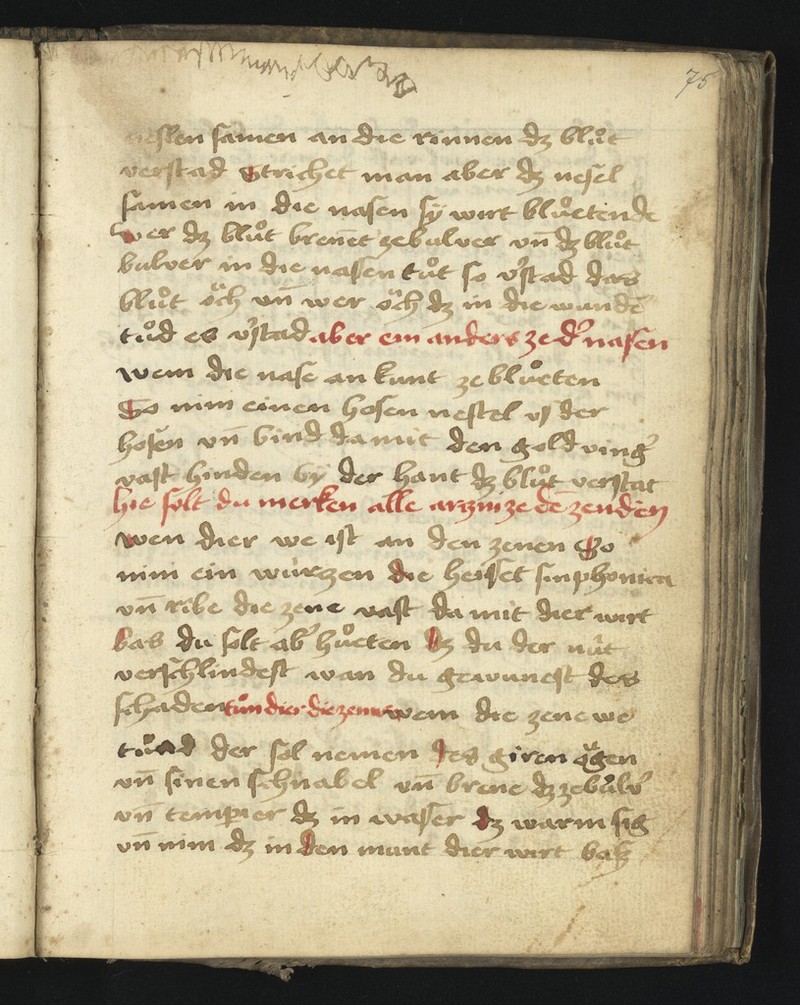 75
neslen samen an die rinnen dz bluͦt
verstad Strichet man aber dz nesel
samen in die nasen sy wirt bluͦetende
Wer dz bluͦt brenet ze bulver vn̄ dz bluͦt
bulver in die nasen tuͦt so v'stad das
bluͦt oͮch vn̄ wer oͮch dz in die wundē
tuͦd es v'stad aber ein anders ze d' nasen
wem die nase an kunt ze bluͦeten
So nim einen hosen nestel vs der
hosen vn̄ bind da mit den gold ving'
vast hinden by der hant dz bluͦt verstat
hie solt du merken alle arzni ze dē zenden
wen dier we ist an den zenen So
nim ein wurzen die heiset sinphonica
vn̄ ribe die zene vast da mit dier wirt
bas du solt ab' huͦeten dz du der nüt
verschlindest wan du gewunest des
schaden tuͦn dier die zene we wem die zene we
tuͦnd der sol nemen des giren oͮgen
vn̄ sinen schnabel vn̄ brene dz ze bulv'
vn̄ tempier dz in waser dz warm sig
vn̄ nim dz in den munt dier wirt bas